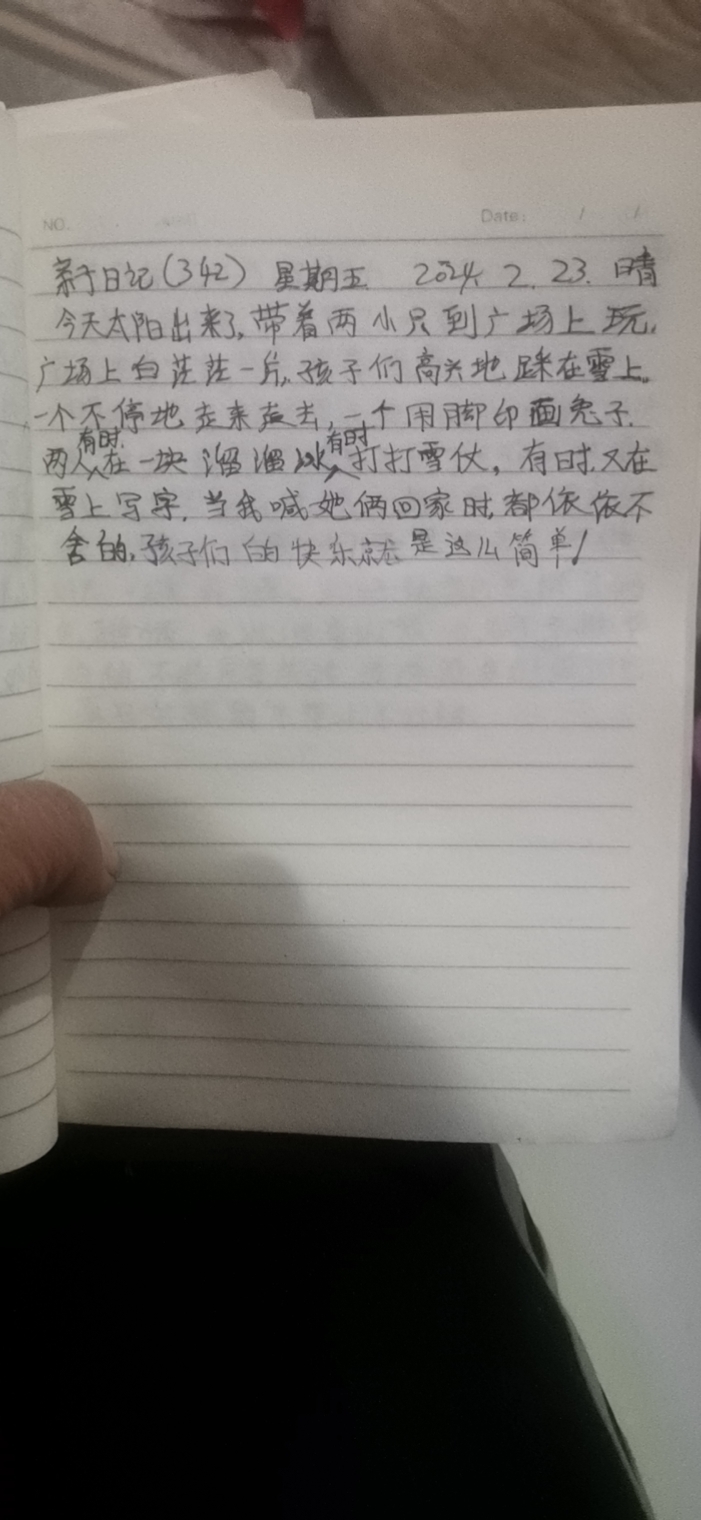 NO.
Date: / /
亲子日记(342) 星期五 2024. 2. 23. 晴
今天太阳出来了,带着两小只到广场上玩,
广场上白茫茫一片,孩子们高兴地踩在雪上。
一个不停地走来走去,一个用脚印画兔子.
两人有时在一块溜溜冰有时打打雪仗,有时又在
雪上写字,当我喊她俩回家时,都依依不
舍的,孩子们的快乐就是这么简单!